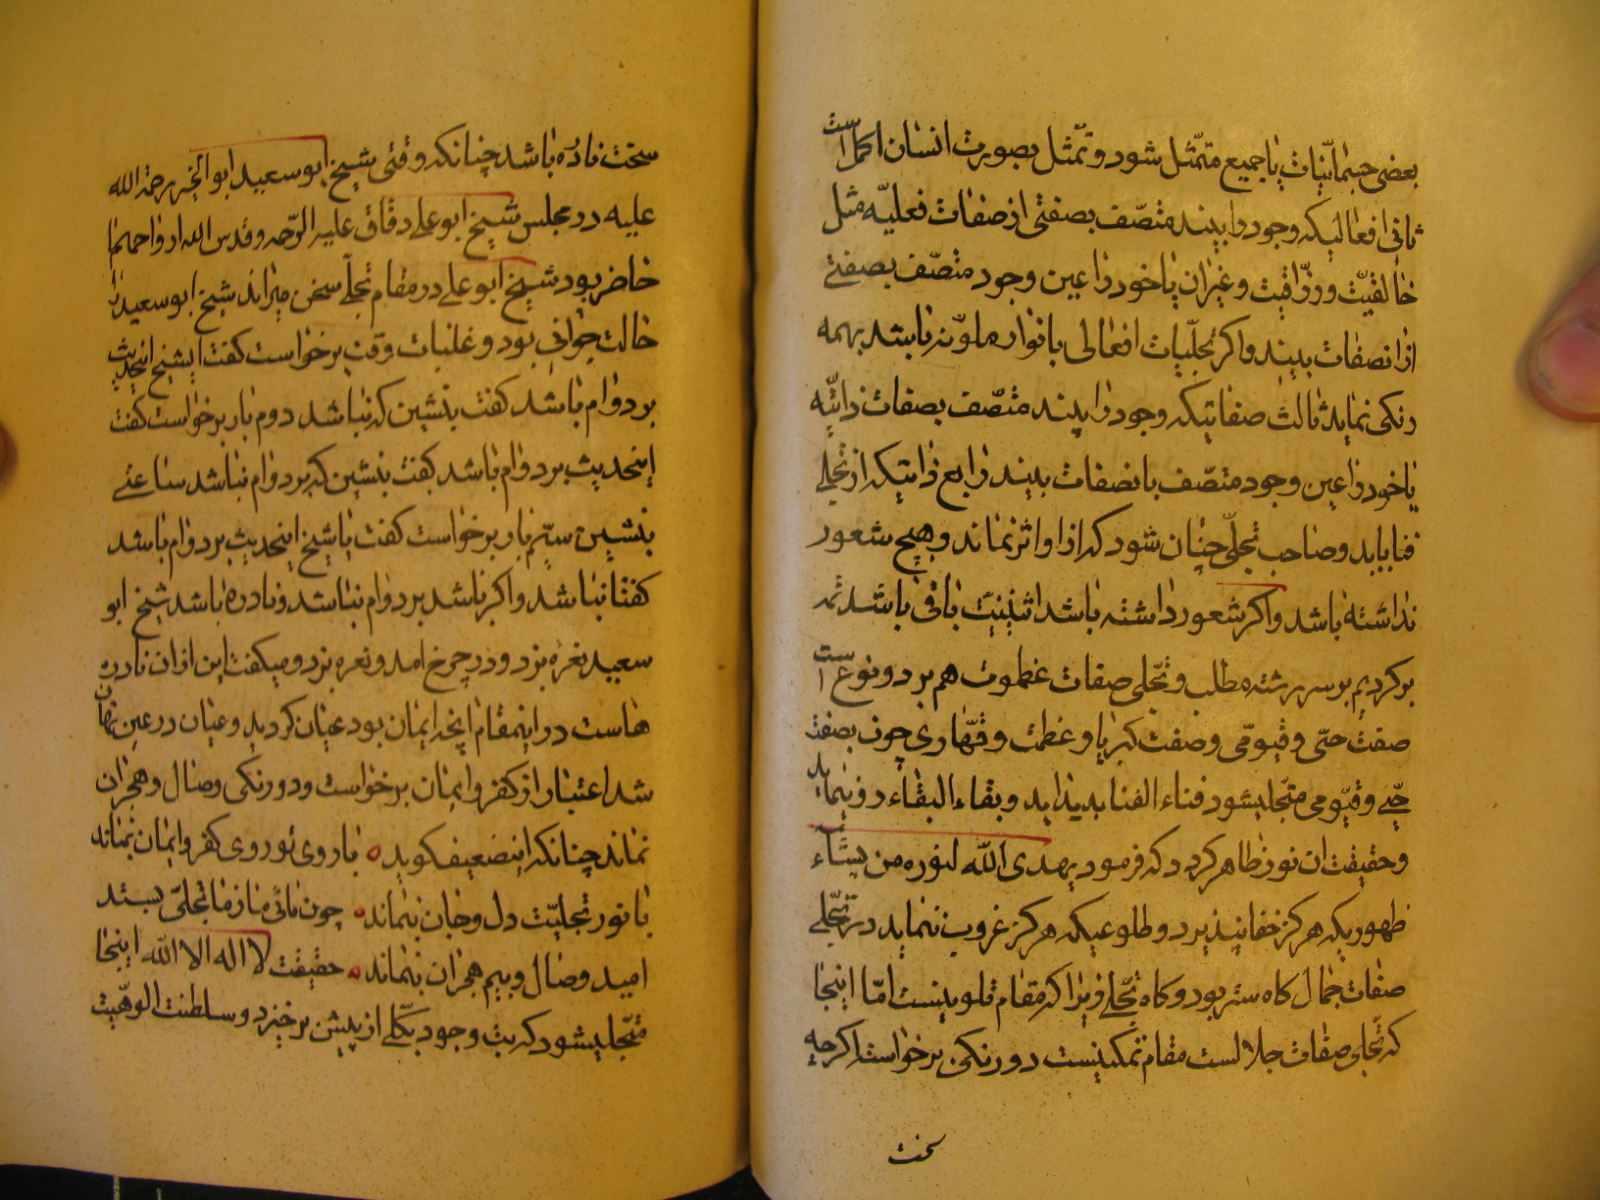 بعضی جسمانیات یا جمیع متمثل شود و تمثل بصورت انسان اکمل است
ثانی افعالیکه وجود را بیند متصف بصفتی از صفات فعلیه مثل
خالقیت و رزاقیت و غیر آن یا خود را عین وجود متصف بصفتے
ازانصفات بیند واکر تجلیات افعالی بانوار ملونه باشد بهمه
رنکی نماید ثالث صفاتیکه وجود را بیند متصف بصفات ذاتیه
یا خود را عین وجود متصف بانصفات بیند رابع ذاتیکه از تجلے
فنا یابد و صاحب تجلی چنان شود که ازا و اثر نماند و هیچ شعور
نداشته باشد واکر شعور داشته باشد اثنینیت باقی باشد ثم
برکردیم بر سر رشته مطلب و تجلی صفات عظموت هم بر دو نوع است
صفت حی و قیومی و صفت کبریا و عظمت و قهاری چون بصفت
حیے و قیومی متجلیشود فناء الفنا پدید اید و بقاء البقاء رو نماید
و حقیقت ان نور ظاهر کردد که فرمود یهدی الله لنوره من یشاء
ظهوریکه هرکز خفا نپذیرد و طلوعیکه هرکز غروب ننماید در تجلے
صفات جمال کاه ستر بود و کاه تجلے زیرا که مقام تلوینست اما اینجا
که تجلی صفات جلالست مقام تمکینست دورنکی برخواست اکرچه
سخت
سخت نادره باشد چنانکه وقتی شیخ ابو سعید ابو الخیر رحمة الله
علیه در مجلس شیخ ابو علی دقاق علیه الرحمه و قدس الله ارواحهما
حاضر بود شیخ ابو علی در مقام تجلے سخن میراند شیخ ابو سعید را
حالت جوانی بود و غلبات وقت برخواست کفت ایشیخ اینحدیث
بر دوام باشد کفت بنشین که نباشد دوم بار برخواست کفت
اینحدیث بر دوام باشد کفت بنشین که بر دوام نباشد ساعتے
بنشین سیم بار برخواست کفت یا شیخ اینحدیث بر دوام باشد
کفتا نباشد واکر باشد بر دوام نباشد و نادره باشد شیخ ابو
سعید نعره بزد و در چرخ امد و نعره بزد و میکفت این ازان نادره
هاست در اینمقام انچه ایمان بود عیان کردید و عیان در عین نهان
شد اعتبار از کفر و ایمان برخواست و دورنکی وصال و هجران
نماند چنانکه اینضعیف کوید ه با روی تو روی کفر و ایمان بنماند
با نور تجلیت دل و جان بنماند ه چون مائی ما ز ما تجلی بستد
امید وصال و بیم هجران بنماند ه حقیقت لا اله الا الله اینجا
متجلیشود که بت وجود بکلے از پیش برخیزد و سلطنت الوهیت